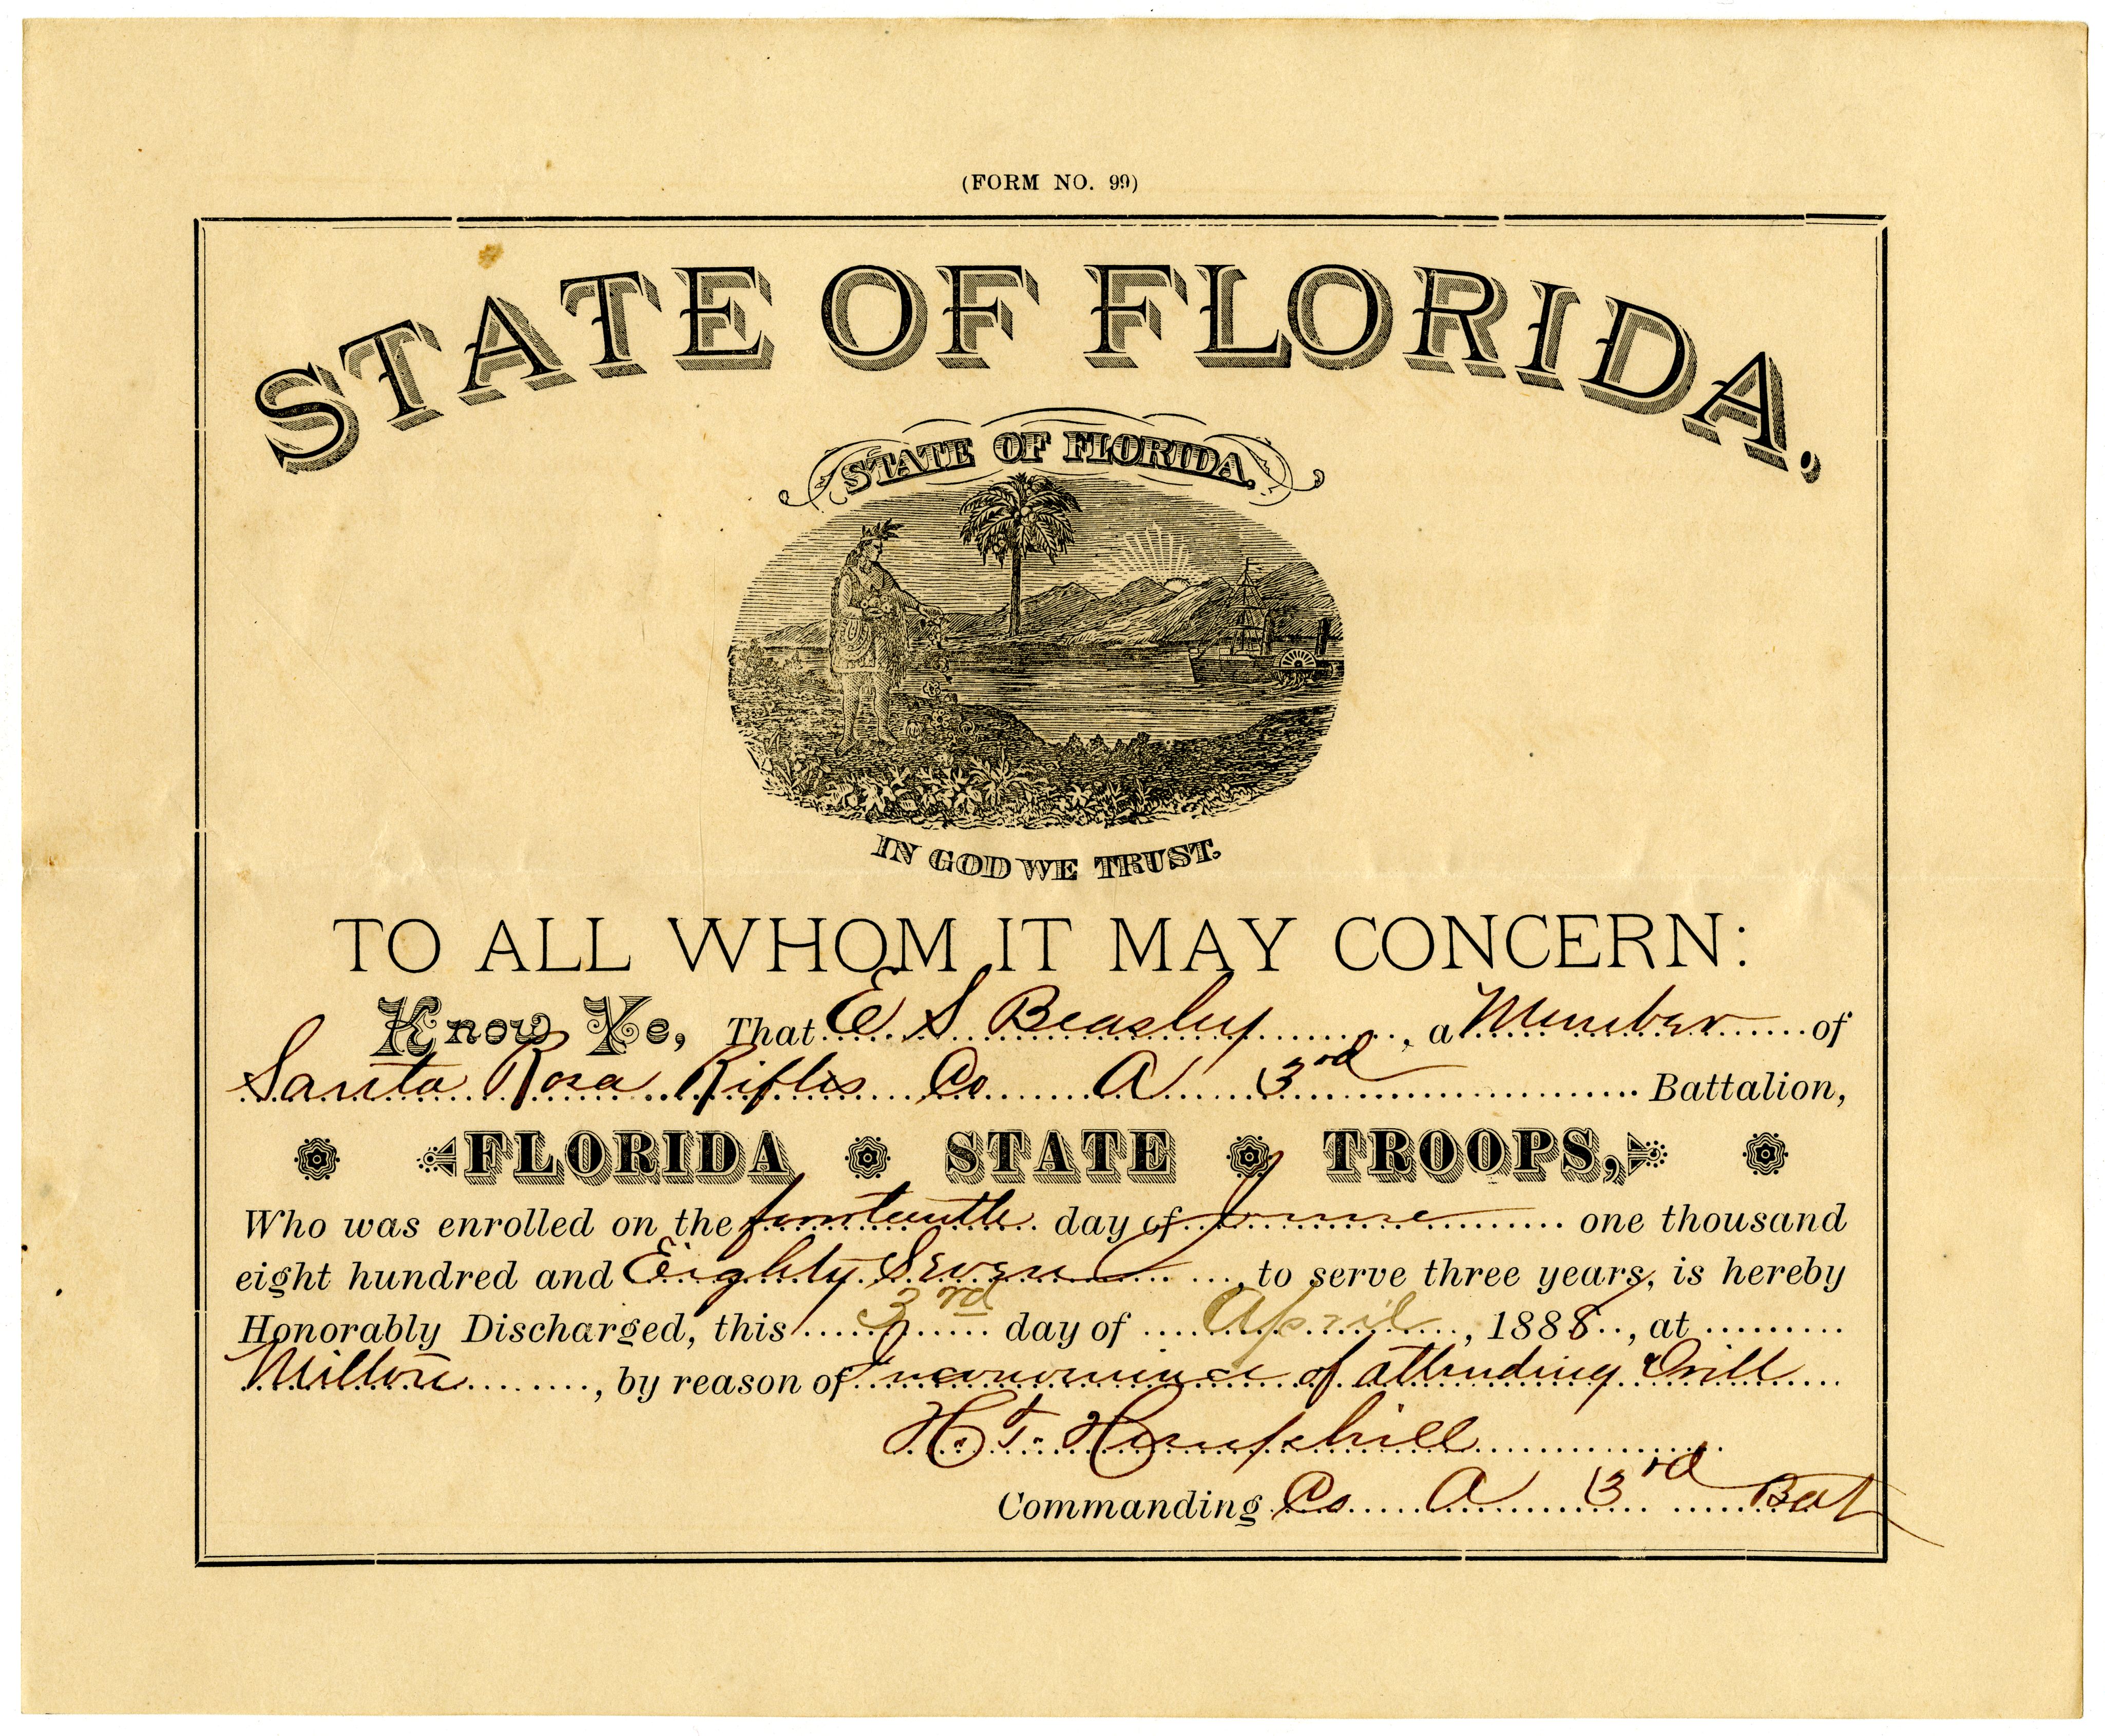 (FORM NO. 99)
STATE OF FLORIDA,
STATE OF FLORIDA,
IN GOD WE TRUST.
TO ALL WHOM IT MAY CONCERN:
Know Ye, That E. S Beasley, a Member of
Santa Rosa Rifles Co A 3rd Battalion,
FLORIDA STATE TROOPS,
Who was enrolled on the fourteenth day of June one thousand
eight hundred and Eighty Seven, to serve three years, is hereby
Honorably Discharged, this 3rd day of April, 1888, at
Milton, by reason of Inconvenience of attending Drill
H. T. Hemphill
Commanding Co A 3rd Bat